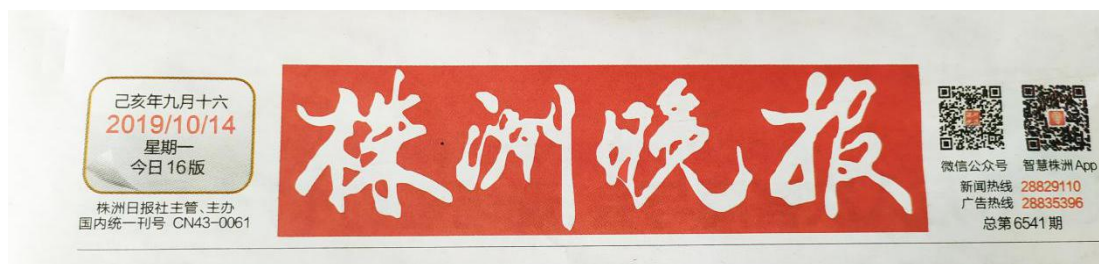 己亥年九月十六
2019/10/14
星期一
今日16版
株洲日报社主管、主办
国内统一刊号 CN43-0061
株洲晚报
微信公众号 智慧株洲App
新闻热线 28829110
广告热线 28835396
总第6541期